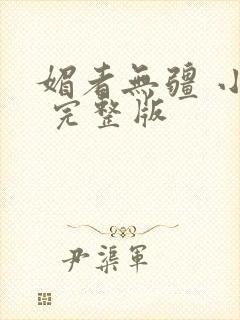 媚者無疆 小
完整版
尹渠軍